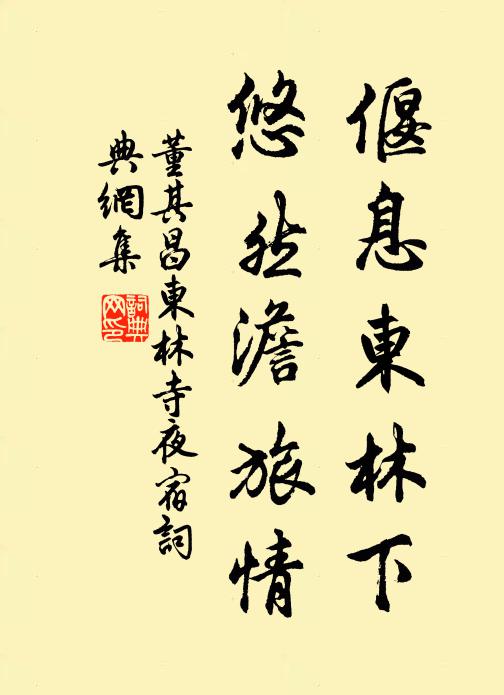 偃息東林下
悠然澹旅情
董其昌東林寺夜宿詞
典網集
詞典
网印